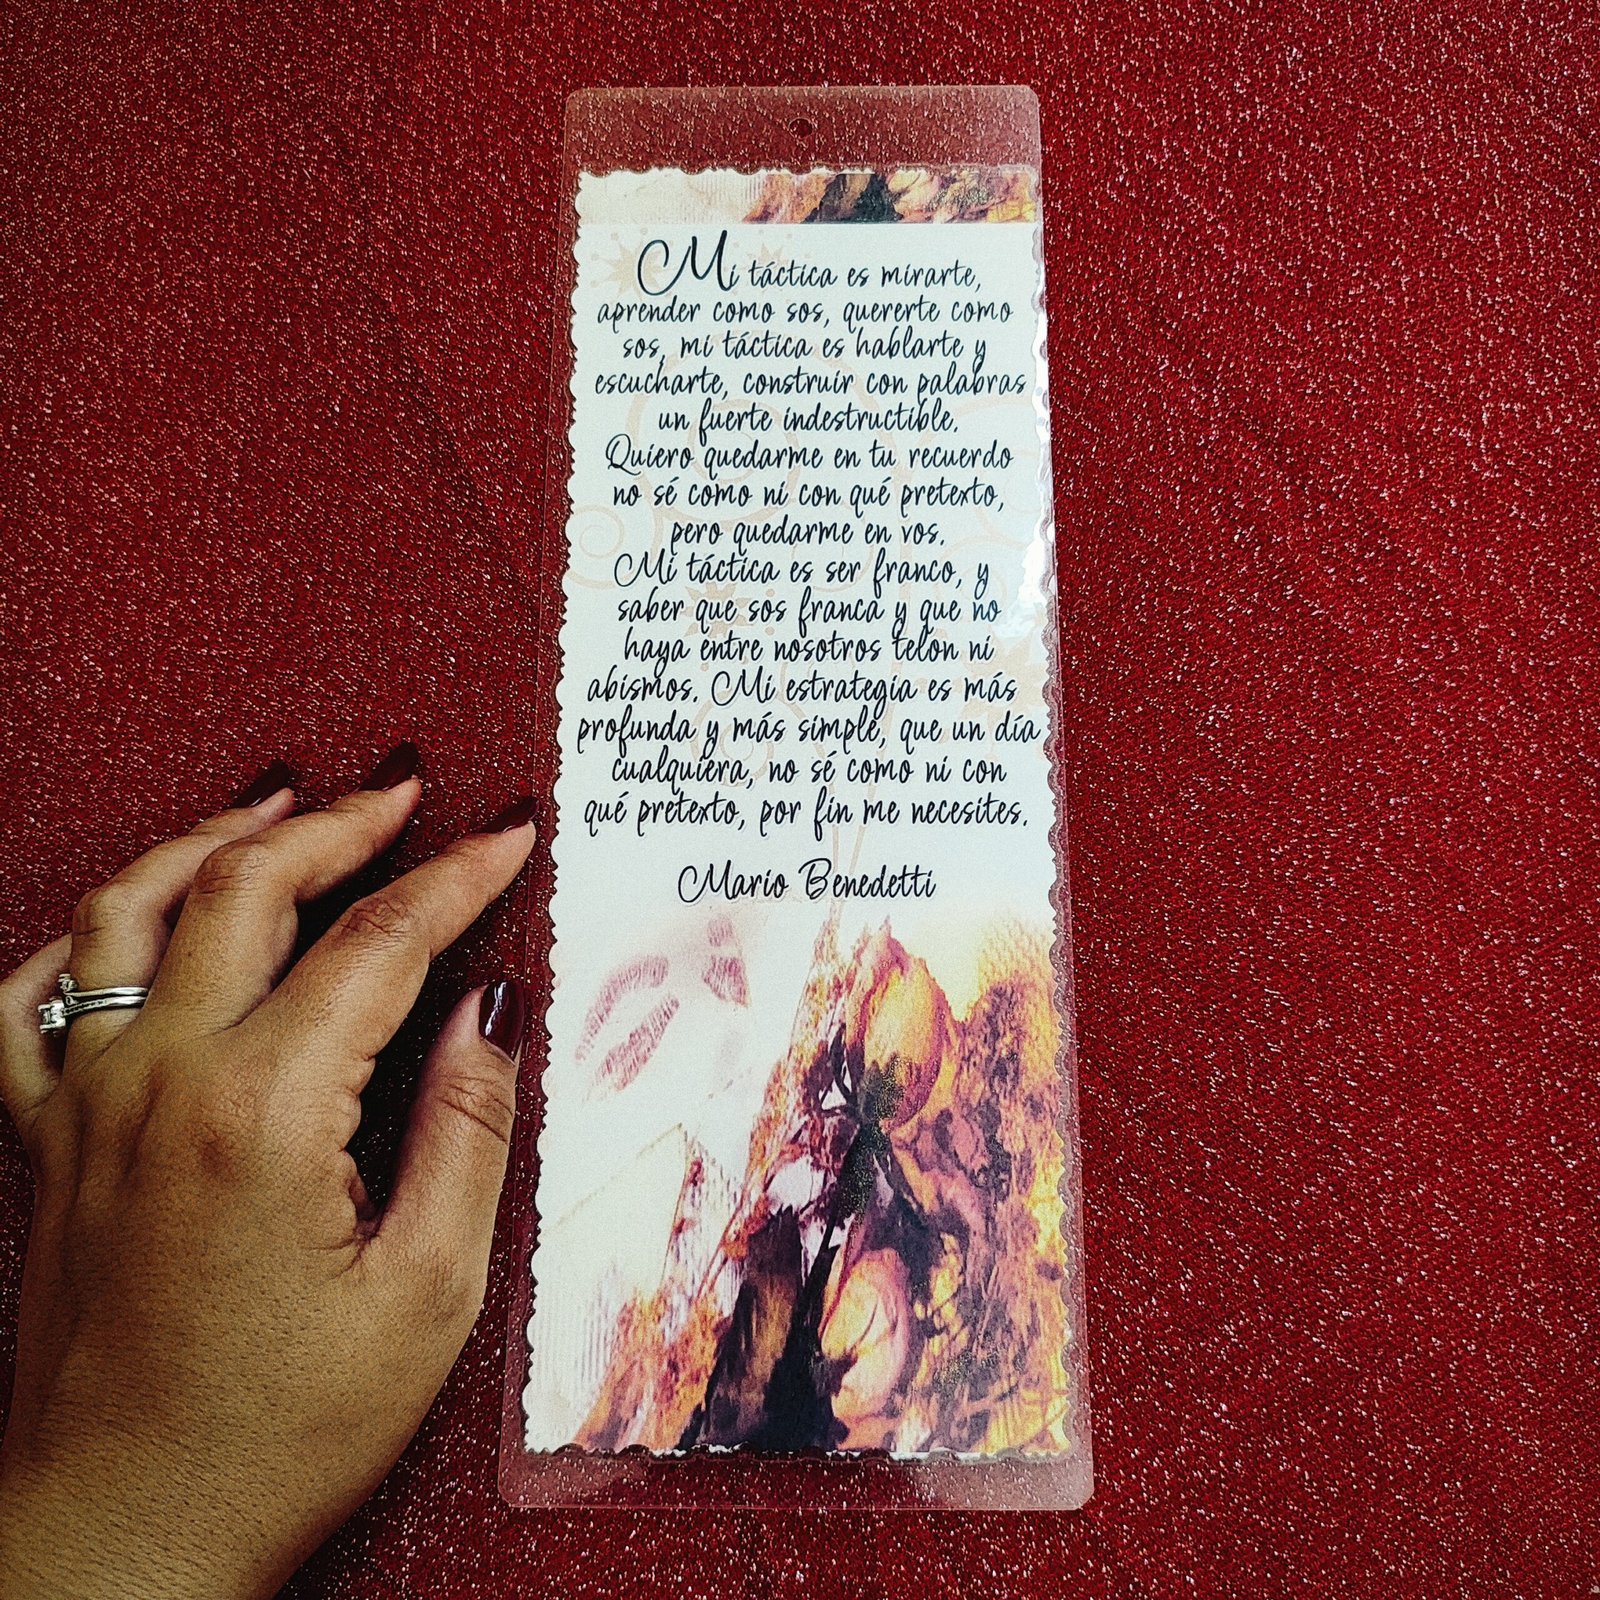 Mi táctica es mirarte,
aprender como sos, quererte como
sos, mi táctica es hablarte y
escucharte, construir con palabras
un fuerte indestructible.
Quiero quedarme en tu recuerdo
no sé como ni con qué pretexto,
pero quedarme en vos.
Mi táctica es ser franco, y
saber que sos franca y que no
haya entre nosotros telón ni
abismos. Mi estrategia es más
profunda y más simple, que un día
cualquiera, no sé como ni con
qué pretexto, por fin me necesites.
Mario Benedetti